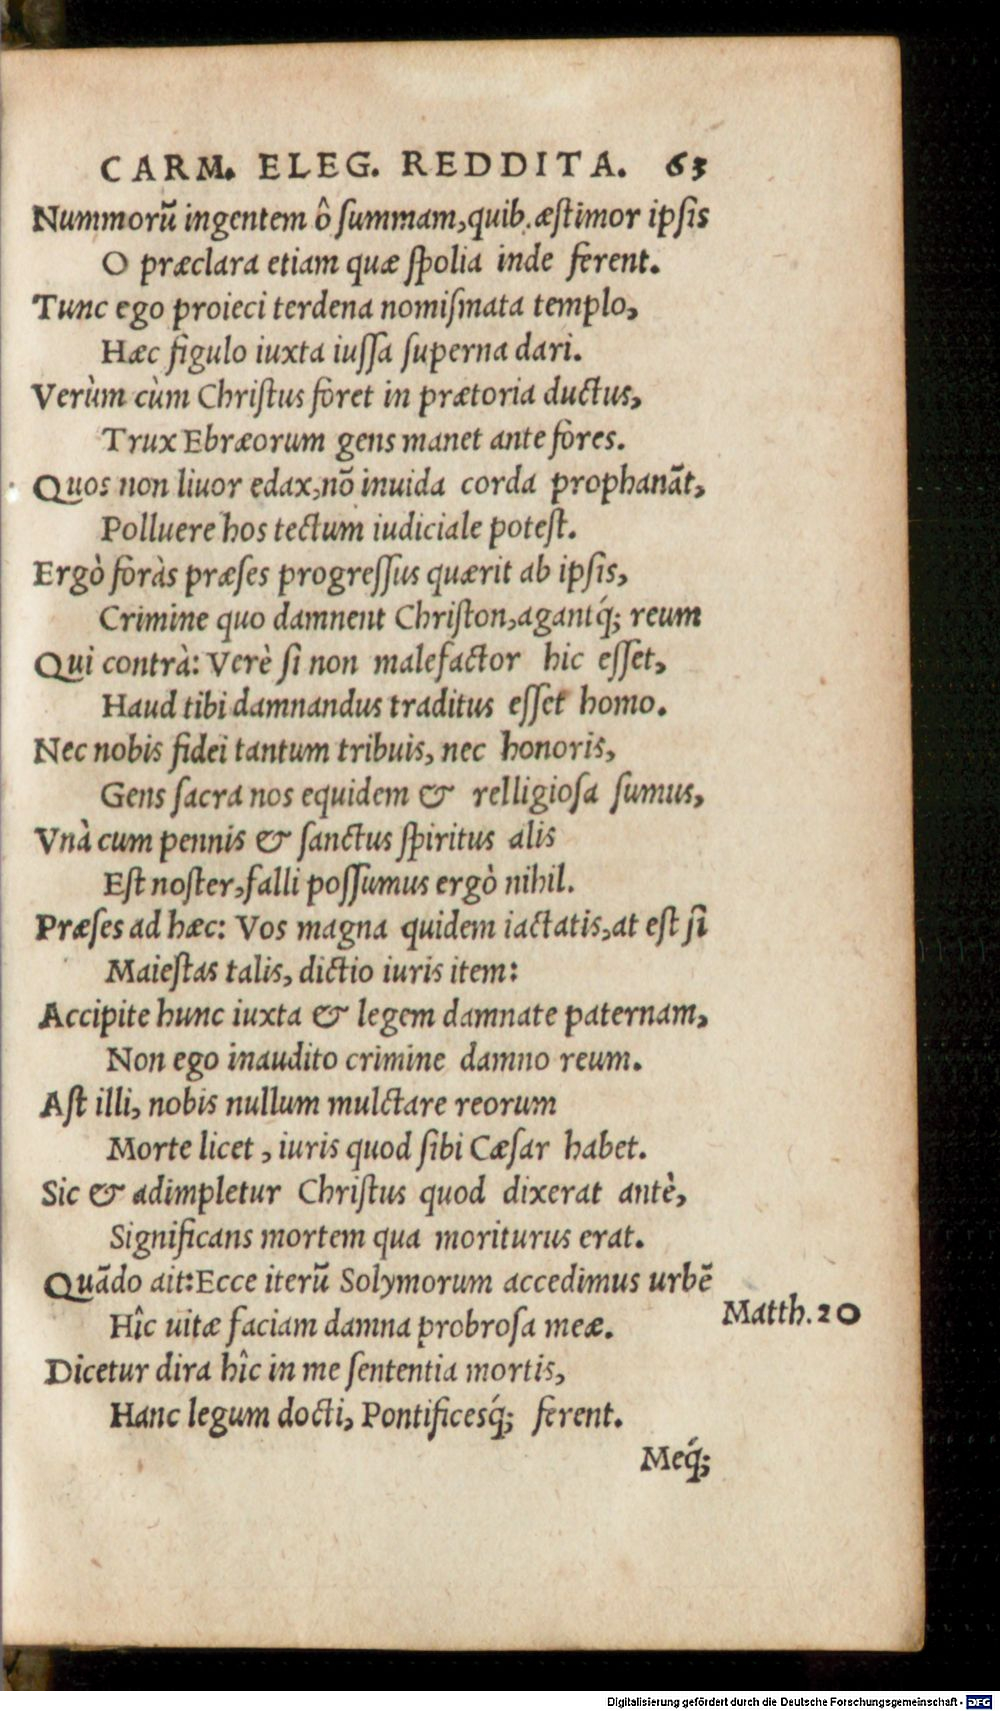 CARM. ELEG. REDDITA. 63
Nummorũ ingentem ô ſummam, quib. æſtimor ipſis
O præclara etiam quæ ſpolia inde ferent.
Tunc ego proieci terdena nomiſmata templo,
Hæc figulo iuxta iuſſa ſuperna dari.
Verùm cùm Chriſtus foret in prætoria ductus,
Trux Ebræorum gens manet ante fores.
Quos non liuor edax, nõ inuida corda prophanãt,
Polluere hos tectum iudiciale poteſt.
Ergò foràs præſes progreſſus quærit ab ipſis,
Crimine quo damnent Chriſton, agantq́; reum
Qui contrà: Verè ſi non malefactor hic eſſet,
Haud tibi damnandus traditus eſſet homo.
Nec nobis fidei tantum tribuis, nec honoris,
Gens ſacra nos equidem & relligioſa ſumus,
Vnà cum pennis & ſanctus ſpiritus alis
Eſt noſter, falli poſſumus ergò nihil.
Præſes ad hæc: Vos magna quidem iactatis, at eſt ſi
Maieſtas talis, dictio iuris item:
Accipite hunc iuxta & legem damnate paternam,
Non ego inaudito crimine damno reum.
Aſt illi, nobis nullum mulctare reorum
Morte licet, iuris quod ſibi Cæſar habet.
Sic & adimpletur Chriſtus quod dixerat antè,
Significans mortem qua moriturus erat.
Quãdo ait: Ecce iterũ Solymorum accedimus urbẽ
Matth. 20
Hîc uitæ faciam damna probroſa meæ.
Dicetur dira hîc in me ſententia mortis,
Hanc legum docti, Pontificesq́; ferent.
Meq́;
Digitalisierung gefördert durch die Deutsche Forschungsgemeinschaft - DFG